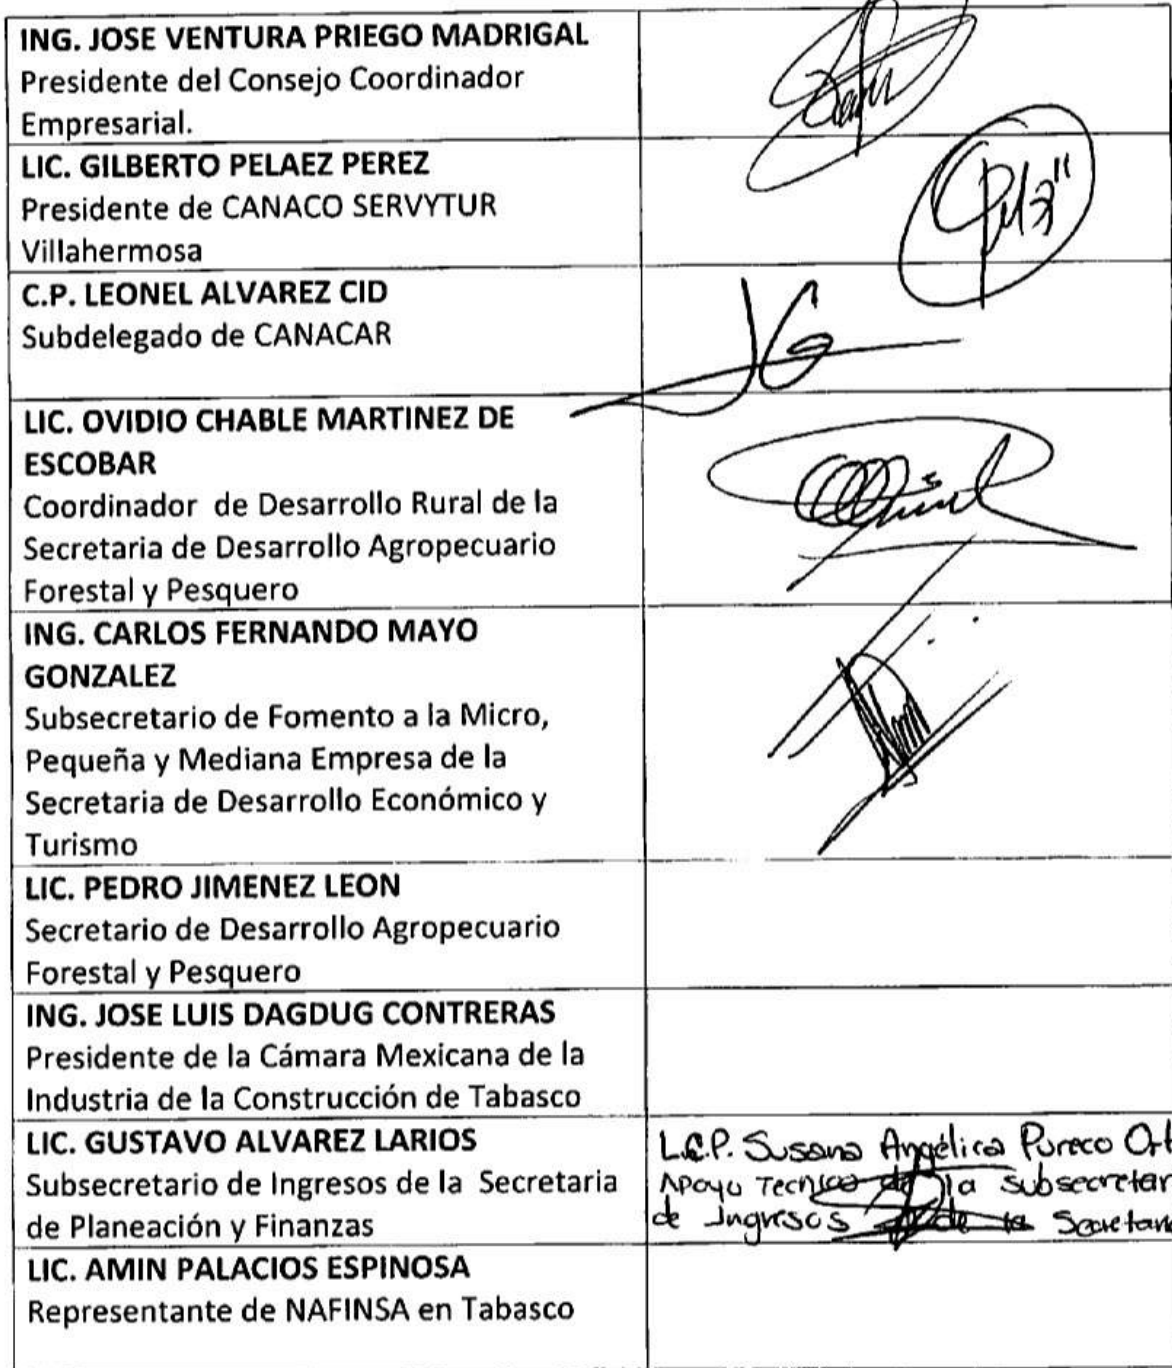 ING. JOSE VENTURA PRIEGO MADRIGAL
Presidente del Consejo Coordinador
Empresarial.
LIC. GILBERTO PELAEZ PEREZ
Presidente de CANACO SERVYTUR
Villahermosa
C.P. LEONEL ALVAREZ CID
Subdelegado de CANACAR
LIC. OVIDIO CHABLE MARTINEZ DE
ESCOBAR
Coordinador de Desarrollo Rural de la
Secretaria de Desarrollo Agropecuario
Forestal y Pesquero
ING. CARLOS FERNANDO MAYO
GONZALEZ
Subsecretario de Fomento a la Micro,
Pequeña y Mediana Empresa de la
Secretaria de Desarrollo Económico y
Turismo
LIC. PEDRO JIMENEZ LEON
Secretario de Desarrollo Agropecuario
Forestal y Pesquero
ING. JOSE LUIS DAGDUG CONTRERAS
Presidente de la Cámara Mexicana de la
Industria de la Construcción de Tabasco
LIC. GUSTAVO ALVAREZ LARIOS
Subsecretario de Ingresos de la Secretaria
de Planeación y Finanzas
L.C.P. Susana Angélica Pureco Ort
Apoyo Tecnico de la Subsecretar
de Ingresos de la Secretaria
LIC. AMIN PALACIOS ESPINOSA
Representante de NAFINSA en Tabasco